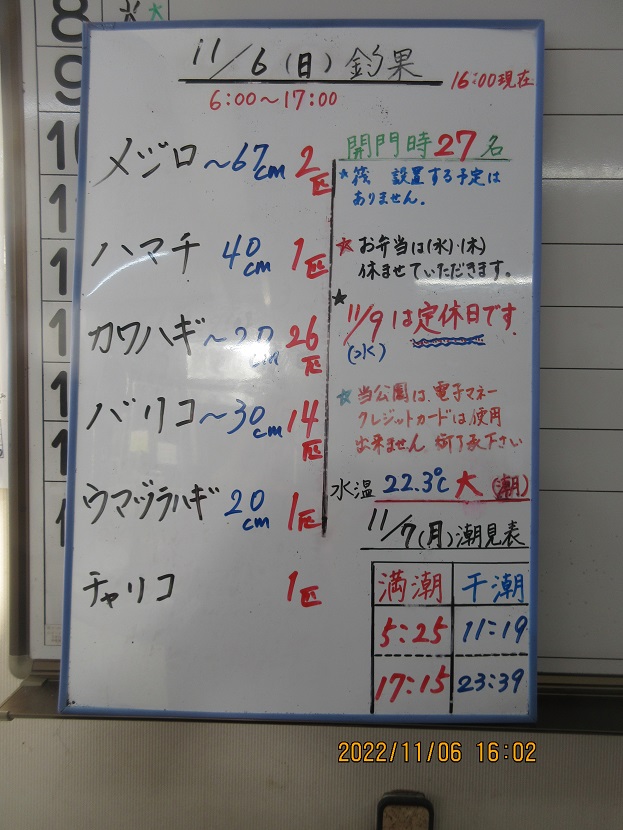 11/6(日) 釣果
16:00現在
6:00～17:00
メジロ ～67cm 2匹
ハマチ 40cm 1匹
カワハギ ～20cm 26匹
バリコ ～30cm 14匹
ウマヅラハギ 20cm 1匹
チャリコ 1匹
開門時27名
★筏 設置する予定は
ありません。
★お弁当は(水)・(木)
休ませていただきます。
★11/9は定休日です
(水)
★当公園は、電子マネー
クレジットカードは使用
出来ません。御了承下さい
水温 22.3℃ 大(潮)
11/7(月)潮見表
満潮 干潮
5:25 11:19
17:15 23:39
2022/11/06 16:02
8
9